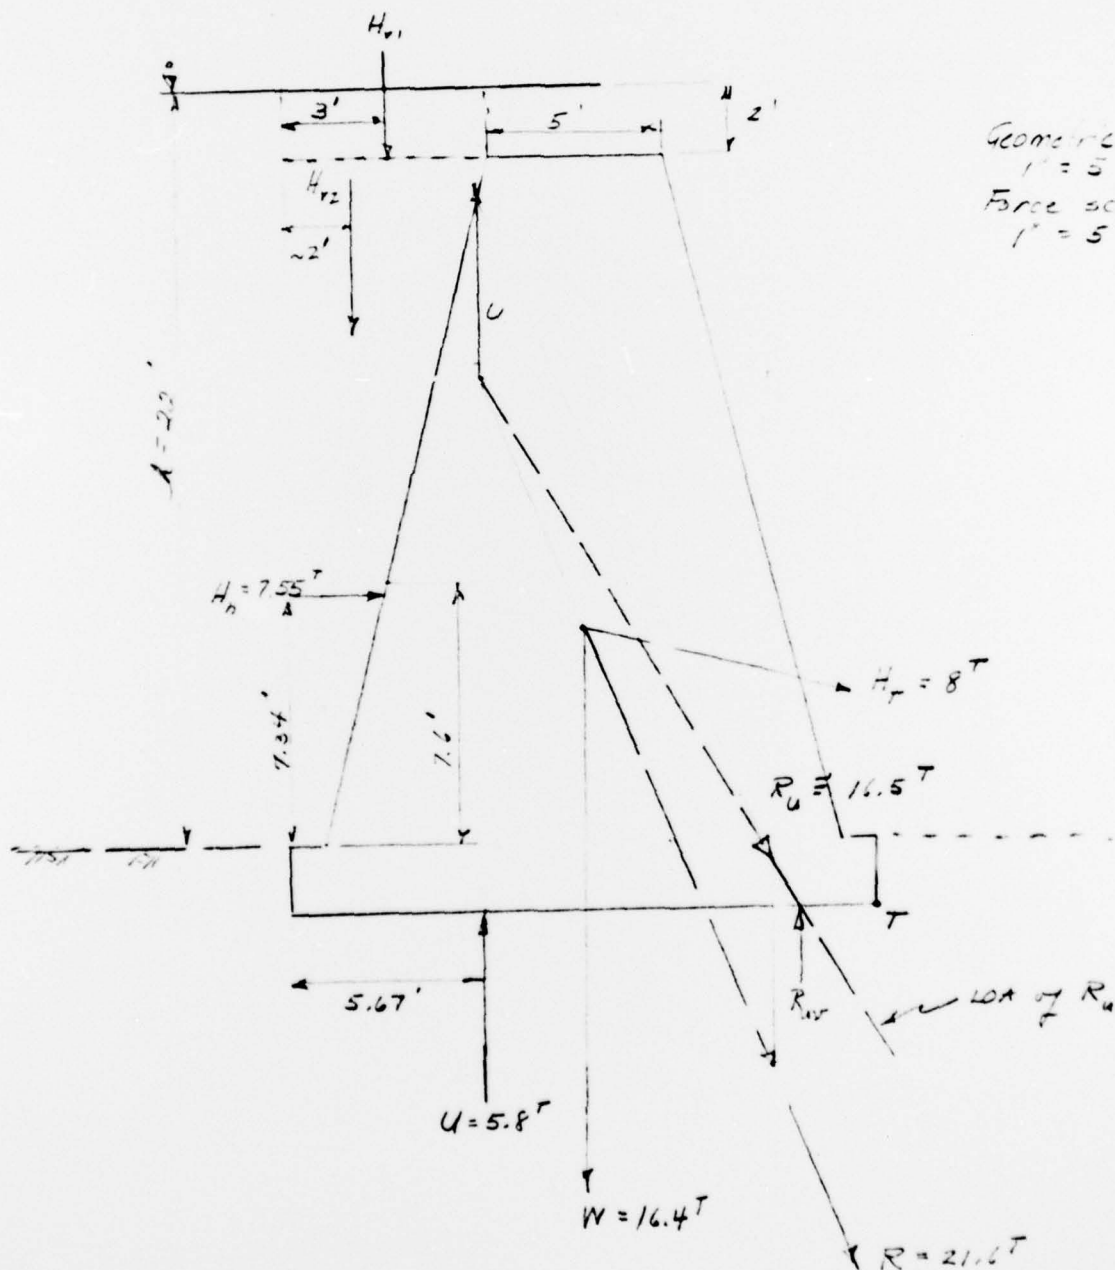 Hv1
3'
5'
2'
Geometric
1" = 5
Force sc
1" = 5
Hv2
~2'
U
h = 22'
Hh = 7.55ᵀ
7.34'
7.6'
HT = 8ᵀ
Ru ≅ 16.5ᵀ
T
5.67'
Ruv
LOA of Ru
U = 5.8ᵀ
W = 16.4ᵀ
R = 21.6ᵀ